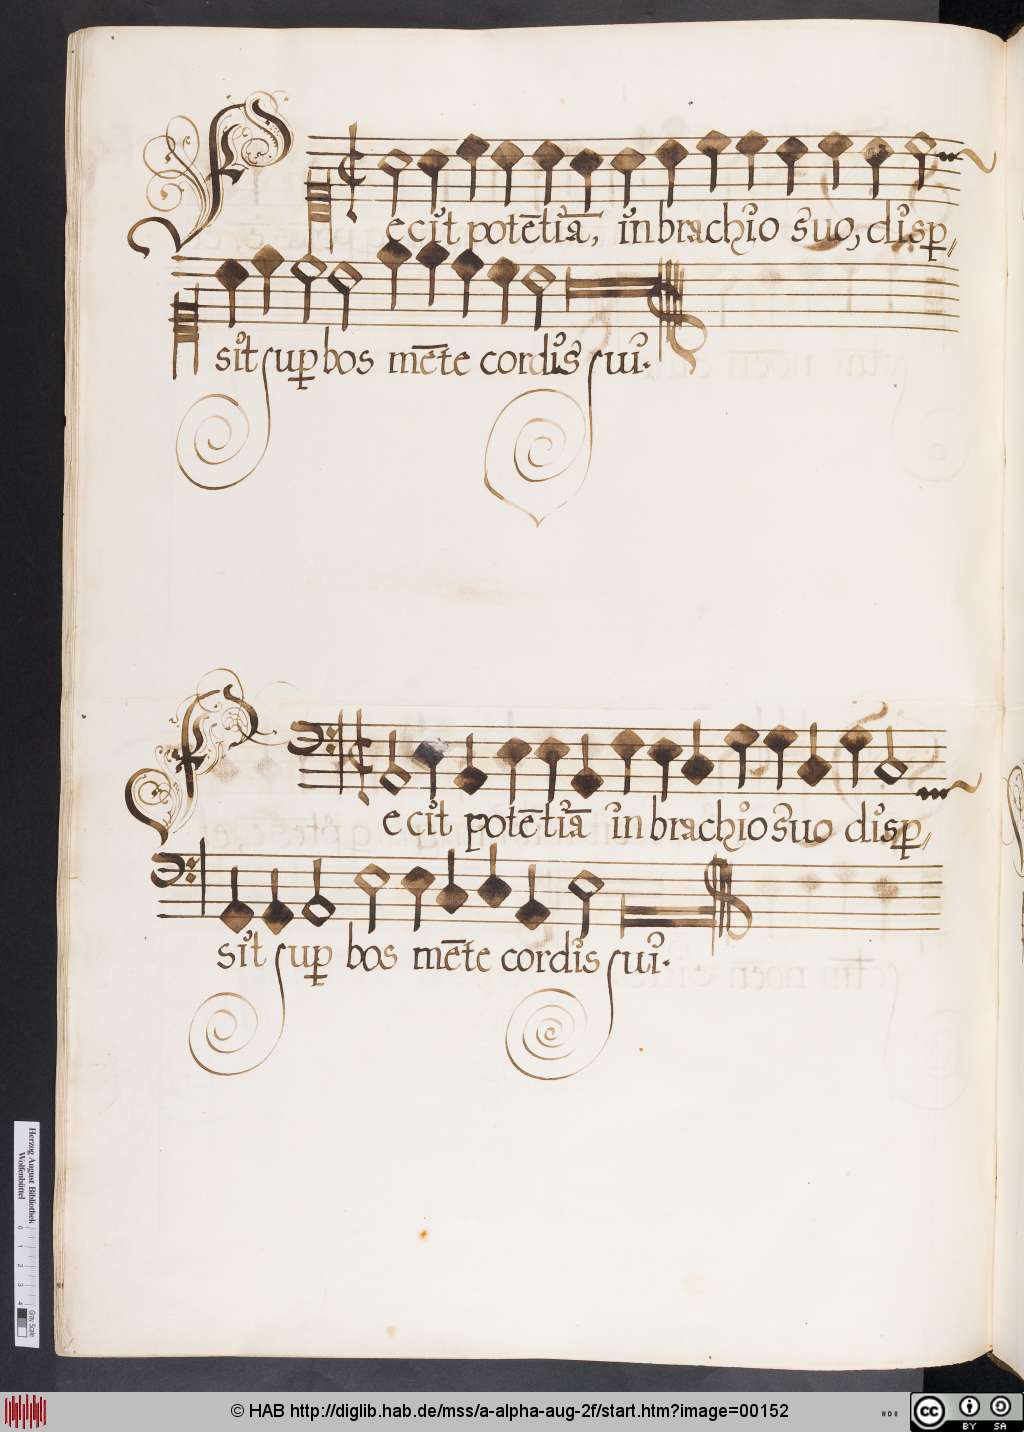 Fecit potētiā, in brachio suo, disp̲//
sit sup̲bos mēte cordis sui.
Fecit potētiā in brachio suo disp̲//
sit sup̲ bos mēte cordis sui.
Herzog August Bibliothek
Wolfenbüttel
0 1 2 3 4
Gray Scale
© HAB http://diglib.hab.de/mss/a-alpha-aug-2f/start.htm?image=00152
cc BY SA